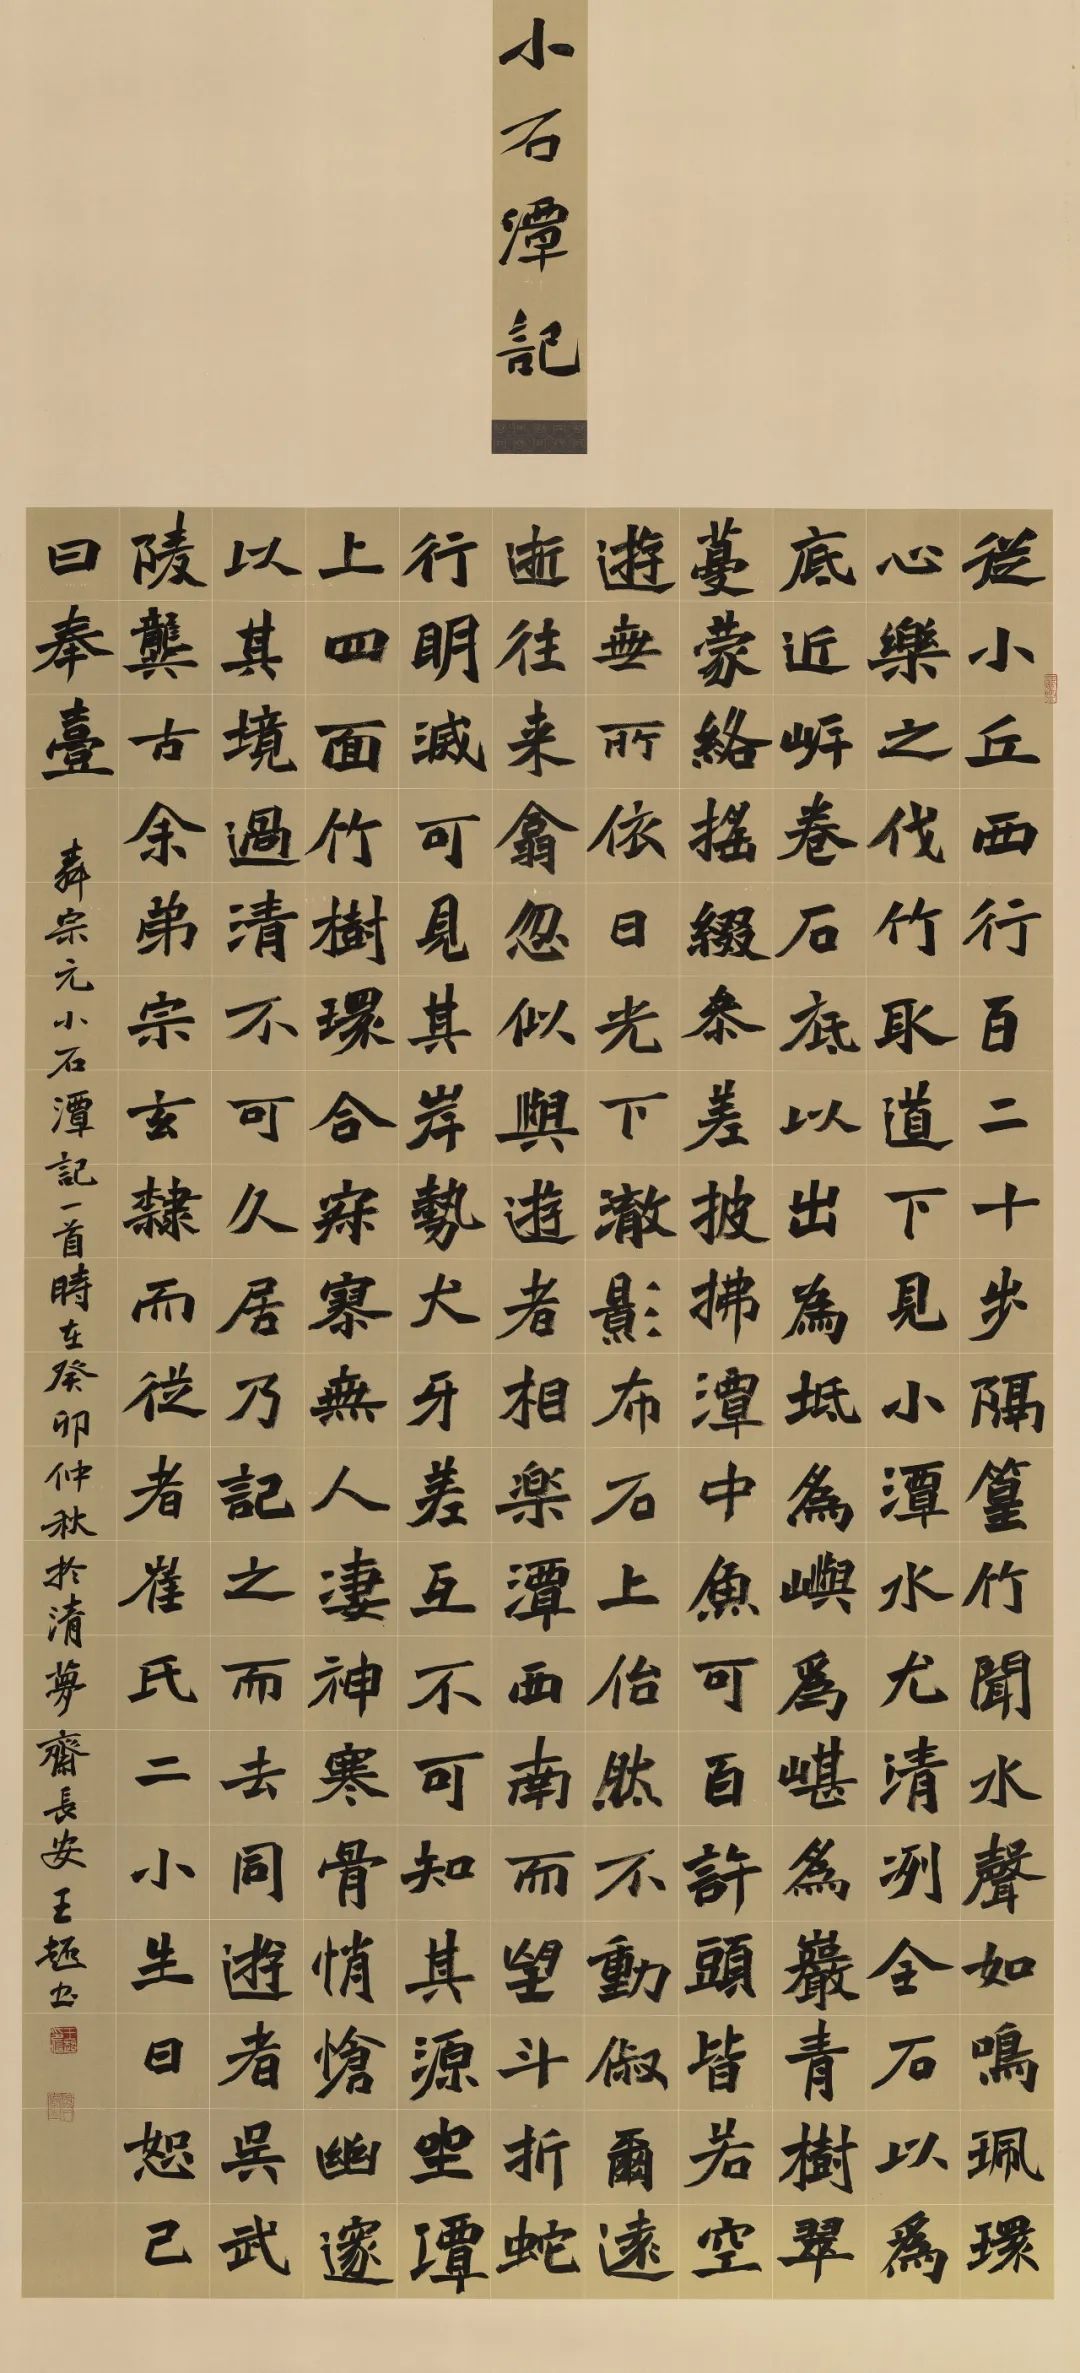 小石潭記
從小丘西行百二十步隔篁竹聞水聲如鳴珮環
心樂之伐竹取道下見小潭水尤清冽全石以為
底近岸卷石底以出為坻為嶼為嵁為巖青樹翠
蔓蒙絡搖綴參差披拂潭中魚可百許頭皆若空
遊無所依日光下澈影布石上佁然不動俶爾遠
逝往来翕忽似與遊者相楽潭西南而望斗折蛇
行明滅可見其岸勢犬牙差互不可知其源坐潭
上四面竹樹環合寂寥無人凄神寒骨悄愴幽邃
以其境過清不可久居乃記之而去同遊者吳武
陵龔古余弟宗玄隸而從者崔氏二小生曰恕己
曰奉壹
宗元小石潭記一首時在癸卯仲秋於清夢齋長安王超书